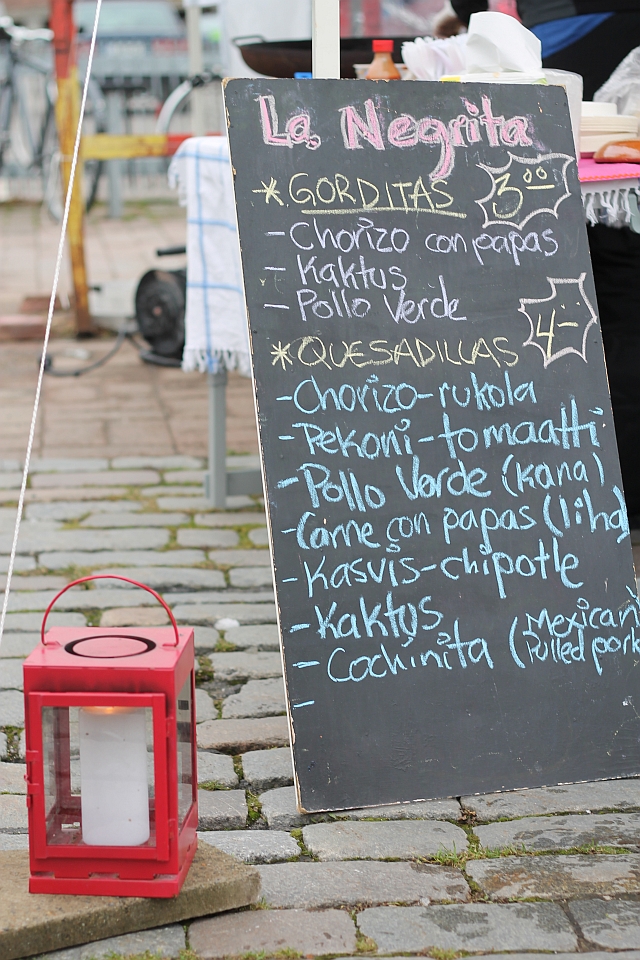 La Negrita
* GORDITAS 3.00
- Chorizo con papas
- Kaktus
- Pollo Verde
* QUESADILLAS 4-
- Chorizo-rukola
- Pekoni-tomaatti
- Pollo Verde (kana)
- Carne con papas (liha)
- Kasvis-chipotle
- Kaktus
- Cochinita (Mexican
Pulled pork
-